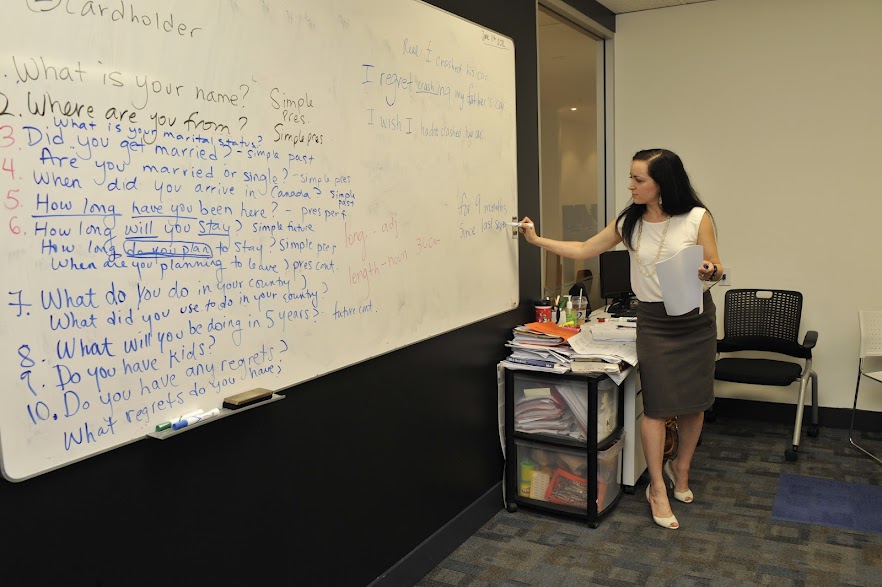 Cardholder
1. What is your name? Simple Pres.
2. Where are you from? Simple pres
What is your marital status?
3. Did you get married? - simple past
Are you married or single? - simple pres
4. When did you arrive in Canada? simple past
5. How long have you been here? - pres perf
6. How long will you stay? simple future
How long do you plan to stay? simple pres
When are you planning to leave? pres cont.
7. What do you do in your country?
What did you use to do in your country?
8. What will you be doing in 5 years? future cont.
9. Do you have kids?
10. Do you have any regrets?
What regrets do you have?
Real: I crashed his car
I regret crashing my father's car
I wish I hadn't crashed
long - adj
length - noun
for 9 months
since last sept